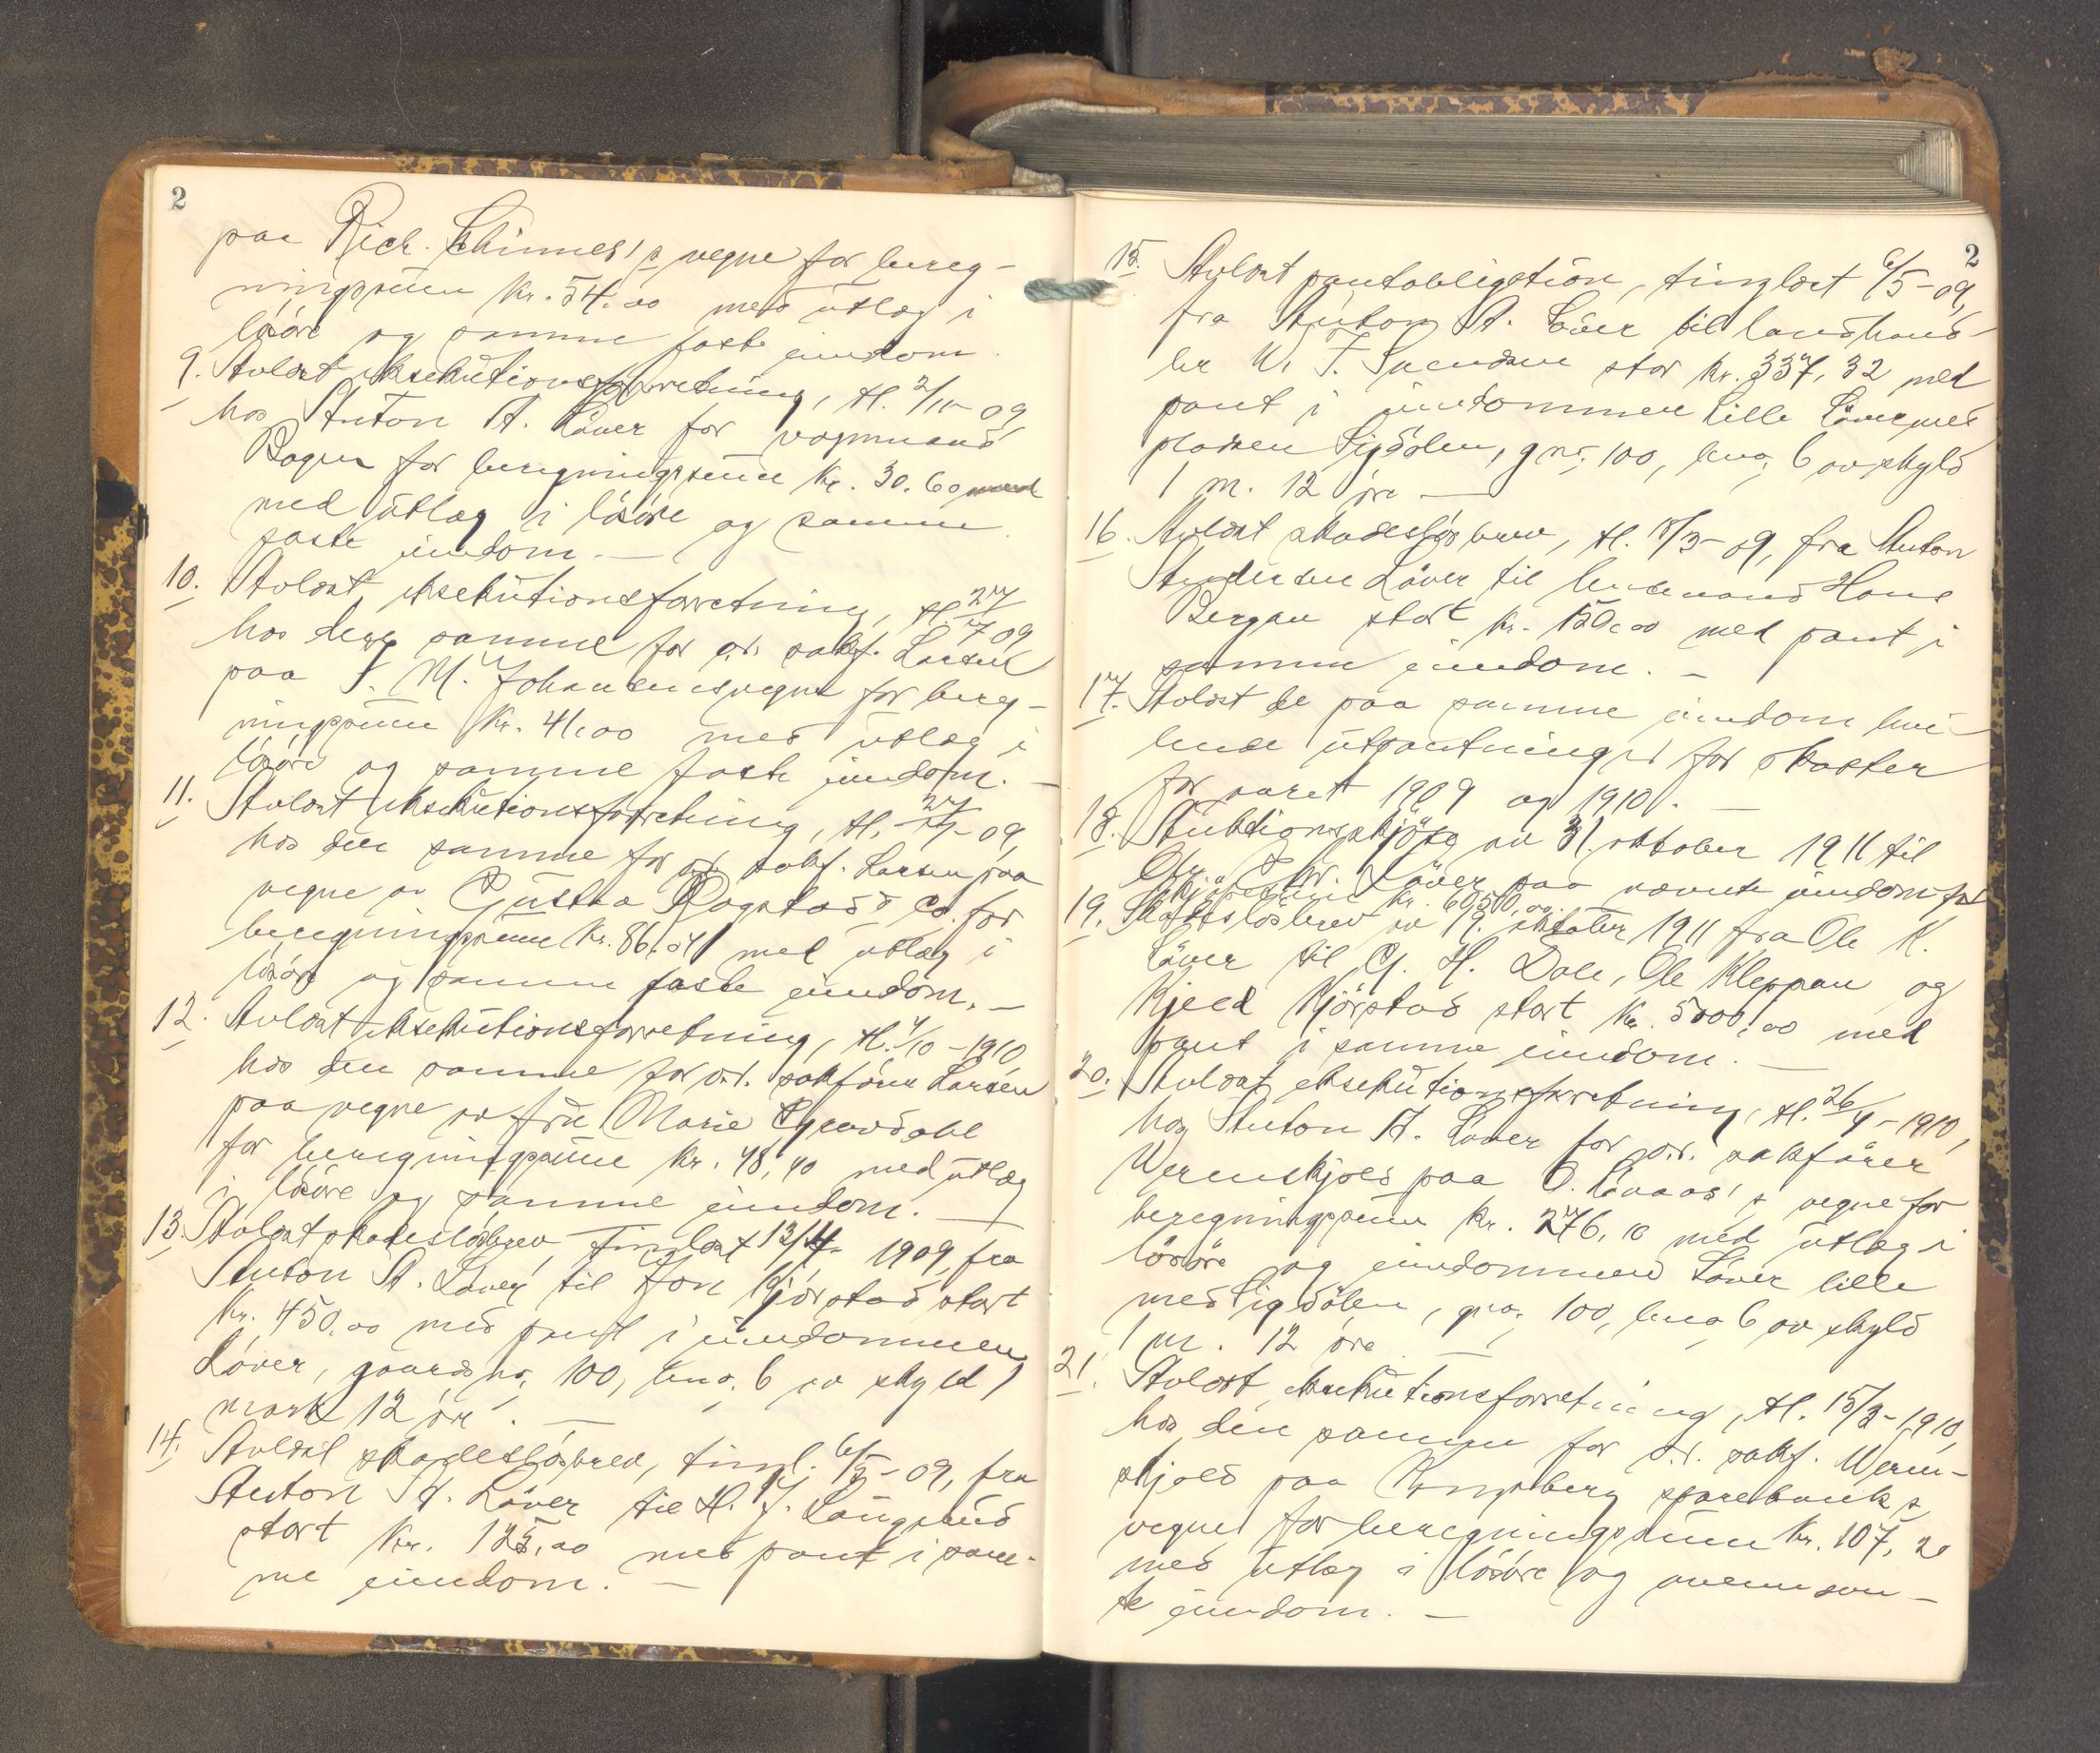 2
paa Rich. Schinnes's vegne for bereg-
ningssum kr. 54.00 med utlæg i
løsøre og samme faste eiendom.
9. Avlæst eksekutionsforretning, tl. 2/10-09,
hos Anton A. Løver for vognmand
Bogen for beregningssum kr. 30.60
med utlæg i løsøre og samme
faste eiendom. —
10. Avlæst eksekutionsforretning, tl. 27/7 09
hos den samme for o.r. sakf. Larsen
paa J. M. Johansens vegne for bereg-
ningssum kr. 41.00 med utlæg i
løsøre og samme faste eiendom. —
11. Avlæst eksekutionsforretning, tl. 27/7-09,
hos den samme for o.r. sakf. Larsen paa
vegne av Gustba Rogstad & Co. for
beregningssum kr. 86.04 med utlæg i
løsøre og samme faste eiendom. —
12. Avlæst eksekutionsforretning, tl. 4/10-1910
hos den samme for o.r. sakfører Larsen
paa vegne av fru Marie
for beregningssum kr. 48,40 med utlæg
i løsøre og samme eiendom. —
13. Avlæst skadesløsbrev, tinglæst 13/4- 1909, fra
Anton A. Løver til Jon Kjørstad stort
kr. 450.00 med pant i eiendommen
Løver, gaards no. 100, bno. 6 av skyld 1
mark 12 øre. —
14. Avlæst skadesløsbrev, tingl. 6/5-09, fra
Anton A. Løver til H. J. Laugerud
stort kr. 125.00 med pant i sam-
me eiendom. —
2
15. Avlæst pantobligation, tinglæst 6/5-09,
fra Anton A. Løver til landhand-
ler W. F. Svendsen stor kr. 337,32 med
pant i eiendommen Lille Løver med
pladsen Sigdølen, g.no. 100, bno. 6 av skyld
1 m. 12 øre —
16. Avlæst skadesløsbrev, tl. 8/3-09, fra Anton
Andersen Løver til lensmand Hans
Bergan stort kr. 150.00 med pant i
samme eiendom. —
17. Avlæst de paa samme eiendom hvi-
lende utpantninger for skatter
for aaret 1909 og 1910. —
18. Auktionsskjøte av 31. oktober 1911 til
Ole Kr. Løver paa nævnte eiendom for
kjøpesum kr. 6050,00.
19. Skadesløsbrev av 19. oktober 1911 fra Ole K.
Løver til G. H. Dale, Ole Kleppan og
Kjeld Kjørstad stort kr. 5000.00 med
pant i samme eiendom. —
20. Avlæst eksekutionsforretning, tl. 26/4-1910,
hos Anton A. Løver for o.r. sakfører
Werenskjold paa O. Løvaas's vegne for
beregningssum kr. 276,10 med utlæg i
løsøre og eiendommen Løver lille
med Sigdølen, gno. 100, bno 6 av skyld
1 m. 12 øre. —
21. Avlæst eksekutionsforretning, tl. 15/3-1910,
hos den samme for o.r. sakf. Weren-
skjold paa Kongsberg sparebanks
vegne for beregningssum kr. 107,20
med utlæg i løsøre og ovennævn-
te eiendom. —